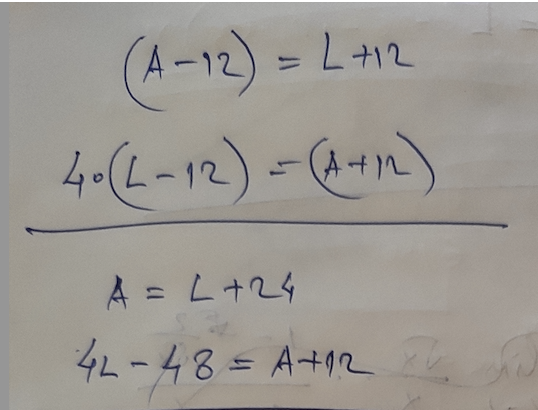 (A-12) = L+12
4•(L-12) = (A+12)
A = L+24
4L - 48 = A+12